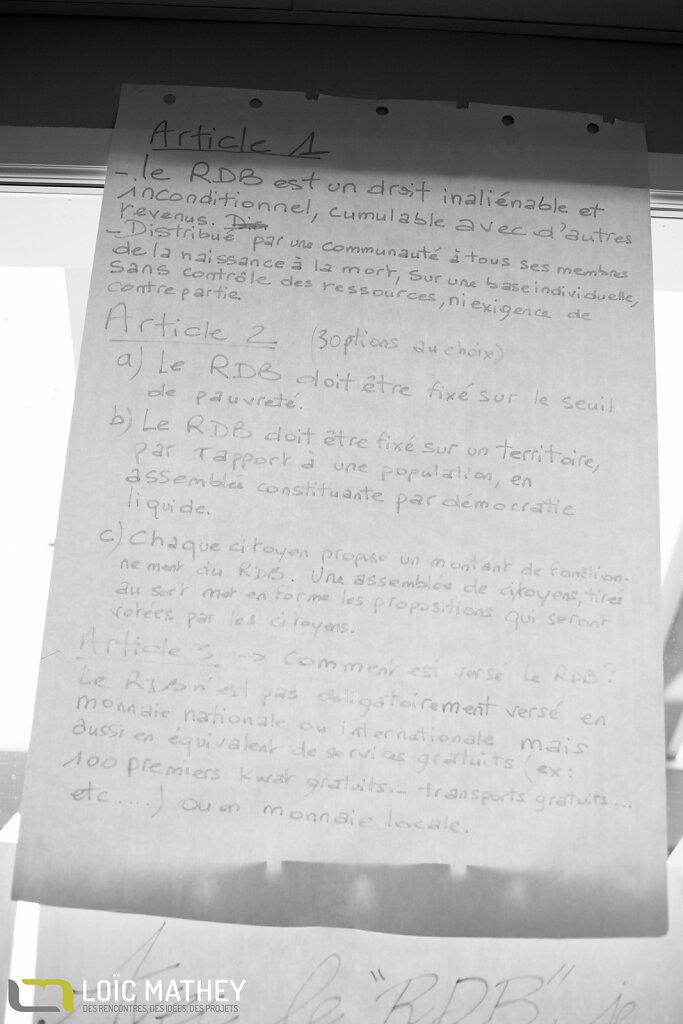 Article 1
- le RDB est un droit inaliénable et
inconditionnel, cumulable avec d'autres
revenus. Dis
- Distribué par une communauté à tous ses membres
de la naissance à la mort, sur une base individuelle,
sans contrôle des ressources, ni exigence de
contre partie.
Article 2 (3 options au choix)
a) Le RDB doit être fixé sur le seuil
de pauvreté.
b) Le RDB doit être fixé sur un territoire,
par rapport à une population, en
assemblée constituante par démocratie
liquide.
c) Chaque citoyen propose un montant de fonction-
nement du RDB. Une assemblée de citoyens, tirés
au sort met en forme les propositions qui seront
votées par les citoyens.
Article 3 -> Comment est versé le RDB?
Le RDB n'est pas obligatoirement versé en
monnaie nationale ou internationale mais
aussi en équivalent de services gratuits (ex:
100 premiers kwat gratuits... transports gratuits....
etc....) ou en monnaie locale.
le "RDB", je
LOÏC MATHEY
DES RENCONTRES, DES IDÉES, DES PROJETS